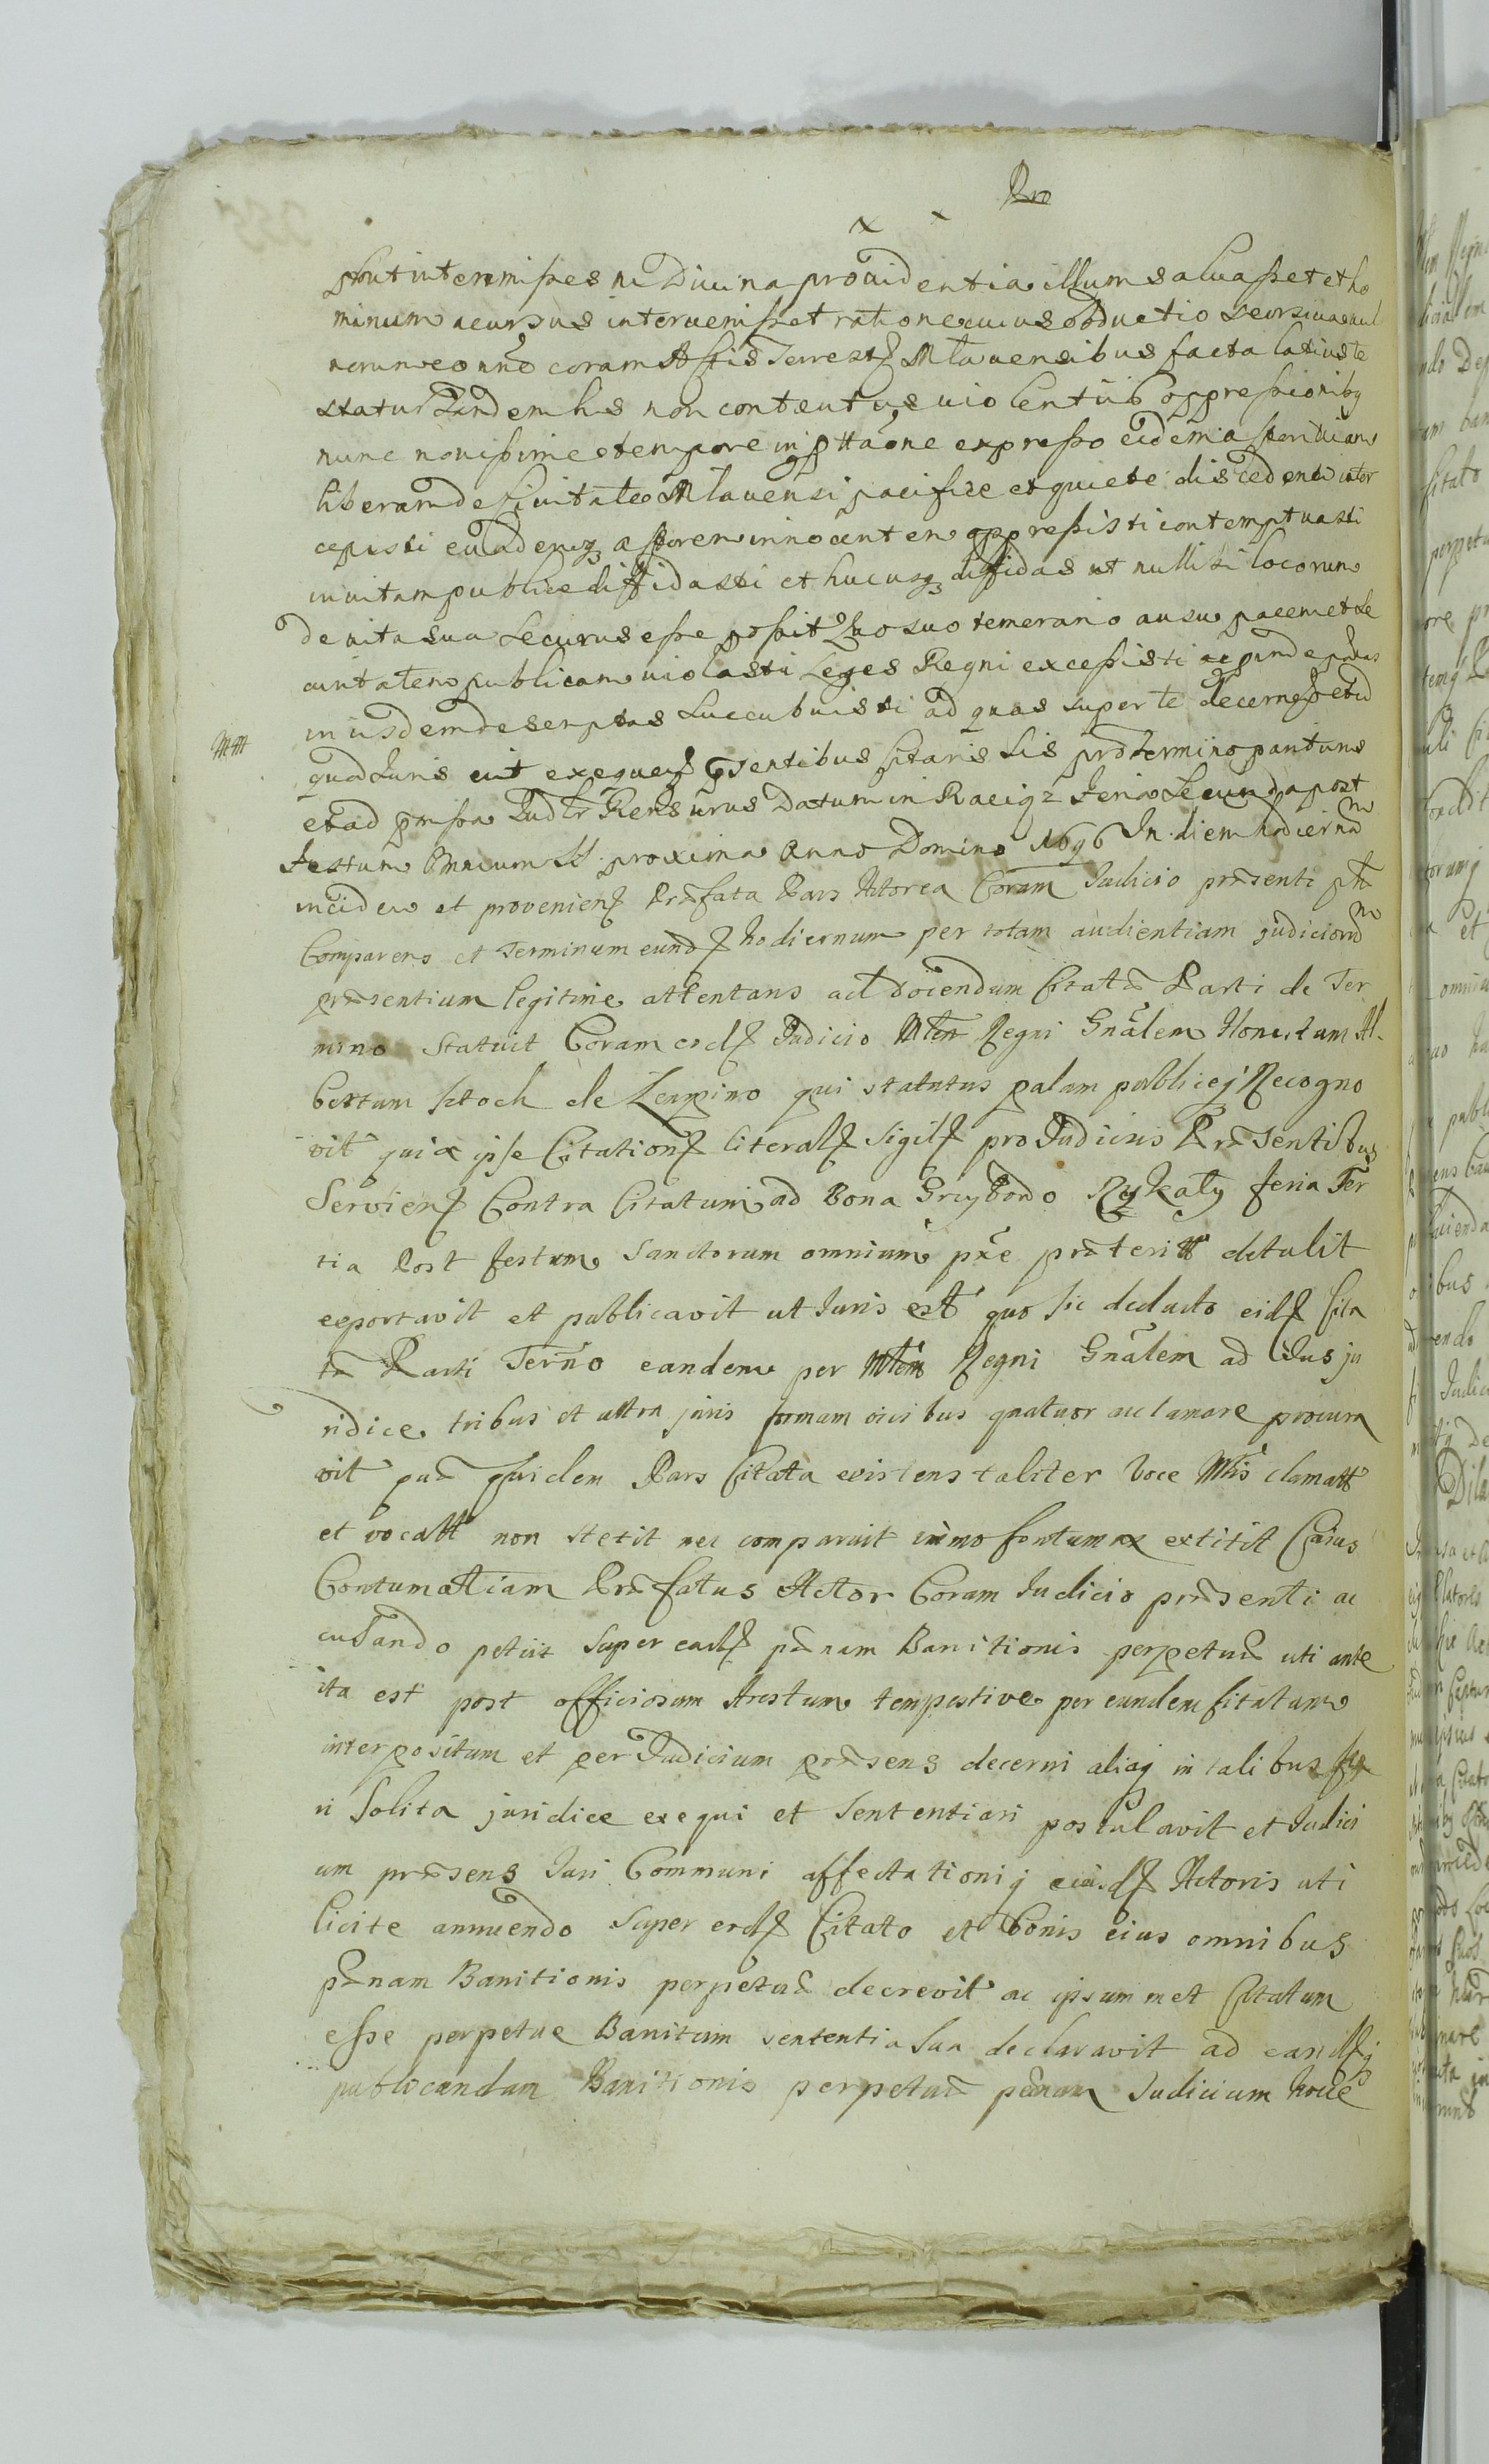 Pro
prout intermisses ni Divina providentia illum salvasset et ho
minum accursus intervenisset ratione cuius obductio seorsiva vul
nerum eo nñe coram Actis Terrestr Mlavensibus facta latius te
statur Tandem his non contentus violentiis oppressionibq
nunc novissime tempore in ptta̅one expresso eidem actori viam
liberam de Civitate Mlavensi pacifice et quiete discedenti inter
cepisti evademq actorem innocentem oppressisti contemptuasti
in vitam publice diffidasti et hucusq diffidas ut nullibi locorum
de vita sua securus esse possit Quo suo temerario ausu pacem et se
curitatem publicam violasti Leges Regni excessisti ac proinde pænas
in iisdem descriptas succubuisti ad quas super te decerneñ et id
quod Juris erit exequeñ p̃sentibus Citaris sis pro Termino pariturus
et ad præmissa Judlr Rensurus Datum in Raciąż Feria Secunda post
Festum Omnium SS proxima Anno Domino 1696 In diem hodiernam
inciden et provenien Præfata Pars Actorea Coram Judicio præsenti plr
Comparens et Terminum eund hodiernum per totam audientiam judiciorum
præsentium legitime attentans ad dociendum Citatæ Parti de Ter
mino statuit Coram eod Judicio Mlem Regni Gnãlem Honestum Al
bertum Ktoch de Lempino qui statutus palam publiceq Recogno
vit quia ipse Citation literal sigil pro Judiciis Præsentibus
Servien Contra Citatum ad Bona Grzybowo Rykały feria Ter
tia Post festum Sanctorum omnium pxe præterit detulit
eportavit et publicavit ut Juris est quo sic deducto eid Cita
tæ Parti Terño eandem per Mlem Regni Gnãlem ad Jus ju
ridice tribus et ultra juris formam vicibus quatuor acclamare procura
vit quæ quidem Pars Citata existens taliter voce Mlis clamatt
et vocatt non stetit nec comparuit immo Contumax extitit Cuius
Contumatiam Præfatus Actor Coram Judicio præsenti ac
cusando petiit super ead pænam Banitionis perpetuæ uti ante
ita est post officiosum Arestum tempestive per eundem Citatum
interpositum et per Judicium præsens decerni aliaq in talibus fie
ri Solita juridice exequi et Sententiari postulavit et Judici
um præsens Juri Communi affectationiq eiusd Actoris uti
licite annuendo super eod Citato et Bonis eius omnibus
pænam Banitionis perpetuæ decrevit ac ipsummet Citatum
esse perpetue Banitum sententia sua declaravit ad eandq
publicandam Banitionis perpetuæ pænam Judicium hocce